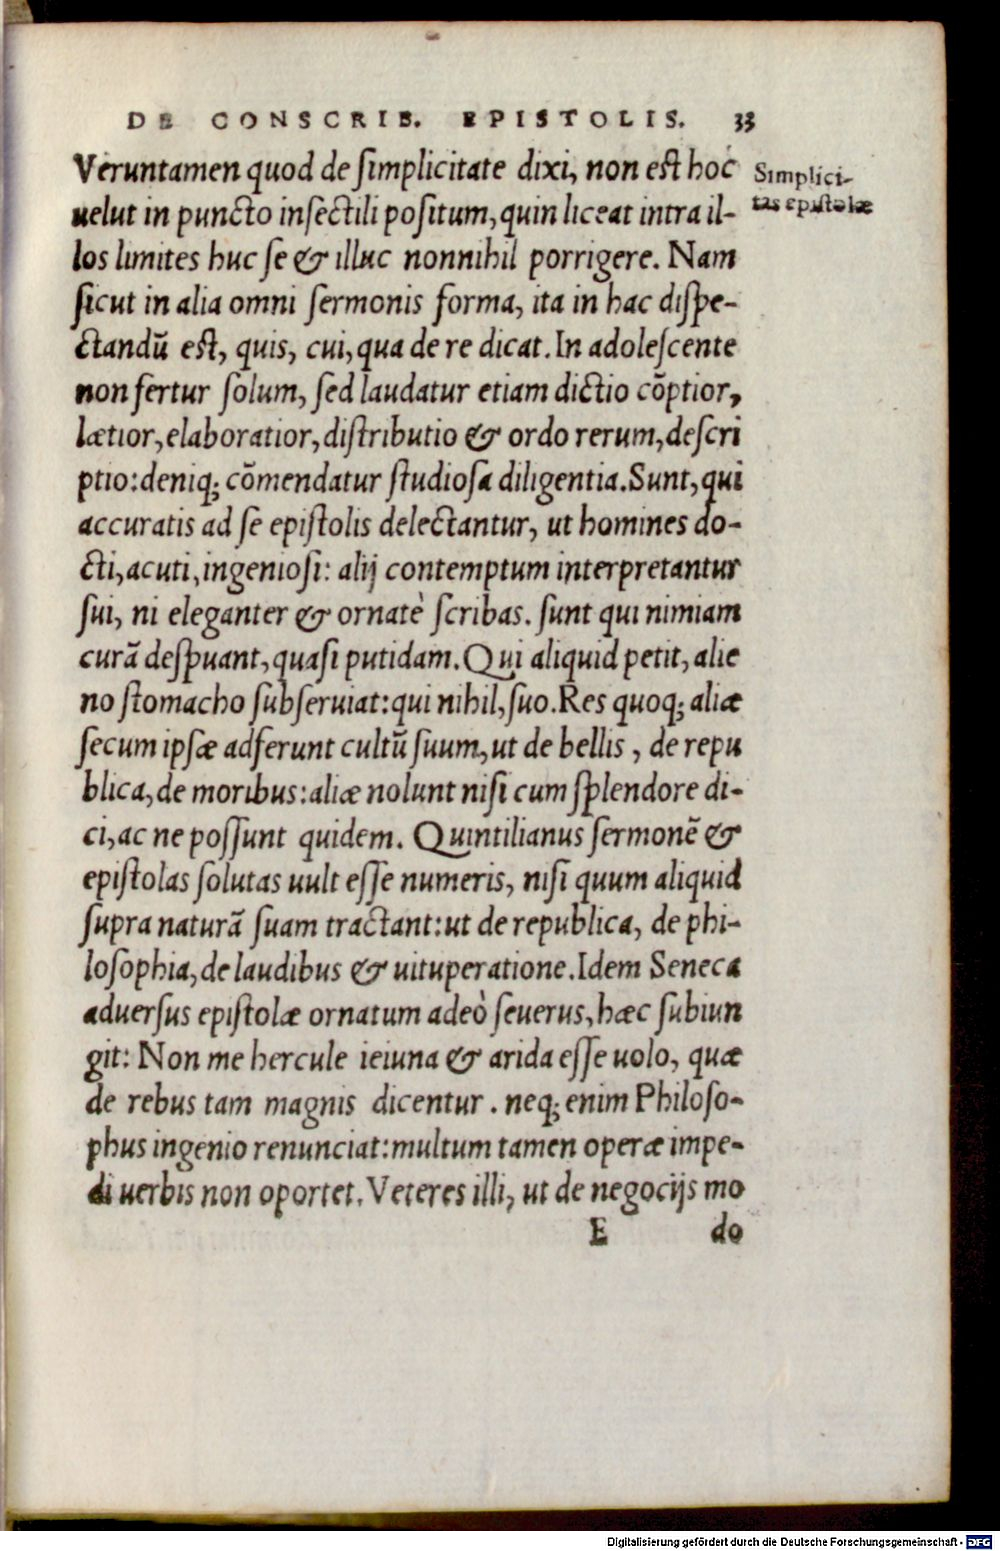 DE CONSCRIB. EPISTOLIS. 33
Veruntamen quod de simplicitate dixi, non est hoc
uelut in puncto insectili positum, quin liceat intra il-
los limites huc se & illuc nonnihil porrigere. Nam
sicut in alia omni sermonis forma, ita in hac dispe-
ctandū est, quis, cui, qua de re dicat. In adolescente
non fertur solum, sed laudatur etiam dictio cōptior,
lætior, elaboratior, distributio & ordo rerum, descri
ptio: deniq; cōmendatur studiosa diligentia. Sunt, qui
accuratis ad se epistolis delectantur, ut homines do-
cti, acuti, ingeniosi: alij contemptum interpretantur
sui, ni eleganter & ornatè scribas. sunt qui nimiam
curā despuant, quasi putidam. Qui aliquid petit, alie
no stomacho subseruiat: qui nihil, suo. Res quoq; aliæ
secum ipsæ adferunt cultū suum, ut de bellis, de repu
blica, de moribus: aliæ nolunt nisi cum splendore di-
ci, ac ne possunt quidem. Quintilianus sermonē &
epistolas solutas uult esse numeris, nisi quum aliquid
supra naturā suam tractant: ut de republica, de phi-
losophia, de laudibus & uituperatione. Idem Seneca
aduersus epistolæ ornatum adeò seuerus, hæc subiun
git: Non me hercule ieiuna & arida esse uolo, quæ
de rebus tam magnis dicentur. neq; enim Philoso-
phus ingenio renunciat: multum tamen operæ impe-
di uerbis non oportet. Veteres illi, ut de negocijs mo
E do
Simplici-
tas epistolæ
Digitalisierung gefördert durch die Deutsche Forschungsgemeinschaft - DFG